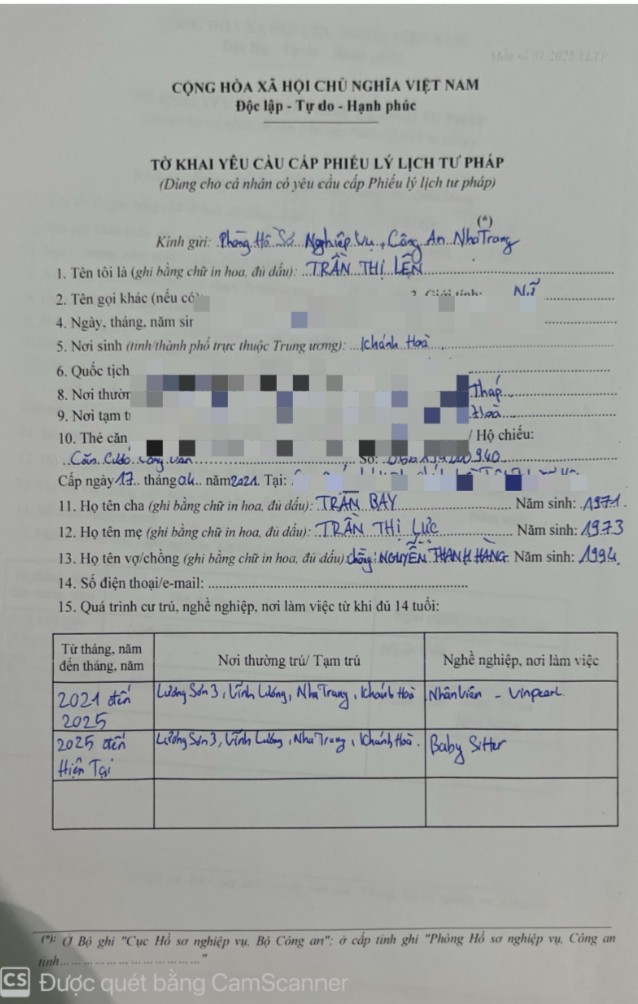 Mẫu số 03/2025/LLTP
CỘNG HÒA XÃ HỘI CHỦ NGHĨA VIỆT NAM
Độc lập - Tự do - Hạnh phúc
TỜ KHAI YÊU CẦU CẤP PHIẾU LÝ LỊCH TƯ PHÁP
(Dùng cho cá nhân có yêu cầu cấp Phiếu lý lịch tư pháp)
(*)
Kính gửi: Phòng Hồ Sơ Nghiệp Vụ, Công An Nha Trang
1. Tên tôi là (ghi bằng chữ in hoa, đủ dấu): TRẦN THỊ LỆN
2. Tên gọi khác (nếu có) 3. Giới tính: Nữ
4. Ngày, tháng, năm sin
5. Nơi sinh (tỉnh/thành phố trực thuộc Trung ương): Khánh Hoà
6. Quốc tịch
8. Nơi thườn Tháp
9. Nơi tạm t Hoà
10. Thẻ căn / Hộ chiếu:
Căn Cước công dân Số:
Cấp ngày 17 tháng 04 năm 2021. Tại:
11. Họ tên cha (ghi bằng chữ in hoa, đủ dấu): TRẦN BAY Năm sinh: 1971
12. Họ tên mẹ (ghi bằng chữ in hoa, đủ dấu): TRẦN THỊ LỰC Năm sinh: 1973
13. Họ tên vợ/chồng (ghi bằng chữ in hoa, đủ dấu) chồng: NGUYỄN THANH HÀNG Năm sinh: 1994
14. Số điện thoại/e-mail:
15. Quá trình cư trú, nghề nghiệp, nơi làm việc từ khi đủ 14 tuổi:
Từ tháng, năm đến tháng, năm Nơi thường trú/ Tạm trú Nghề nghiệp, nơi làm việc
2021 đến 2025 Lương Sơn 3, Vĩnh Lương, Nha Trang, Khánh Hoà Nhân Viên - Vinpearl
2025 đến Hiện Tại Lương Sơn 3, Vĩnh Lương, Nha Trang, Khánh Hoà. Baby Sitter
(*): Ở Bộ ghi "Cục Hồ sơ nghiệp vụ, Bộ Công an"; ở cấp tỉnh ghi "Phòng Hồ sơ nghiệp vụ, Công an
tỉnh.............................."
CS Được quét bằng CamScanner